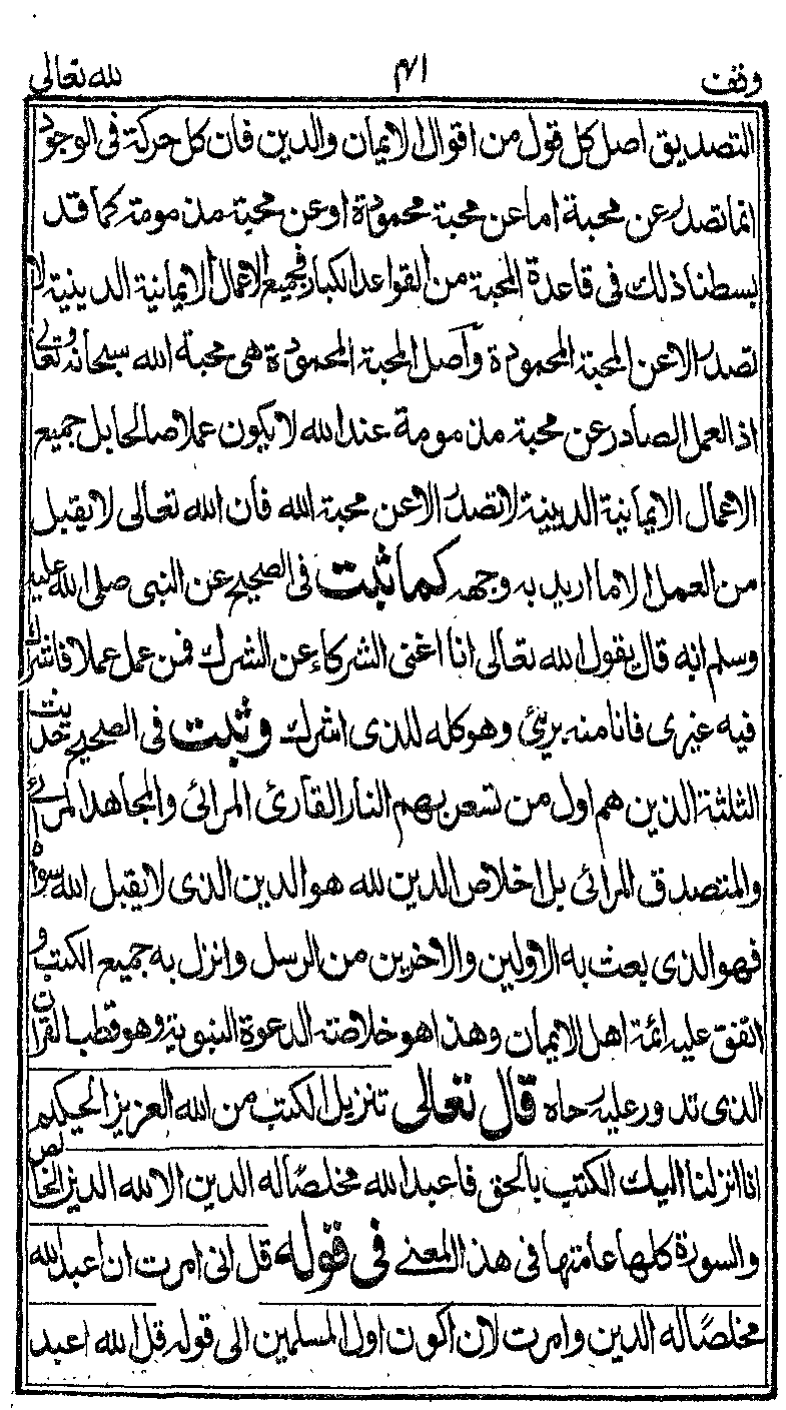 وقف ٤١ لله تعالى
التصديق اصل كل قول من اقوال الايمان والدين فان كل حركة فى الوجود
انما تصدر عن محبة اما عن محبة محمودة او عن محبة مذمومة كما قد
بسطنا ذلك فى قاعدة المحبة من القواعد الكبار فجميع الاعمال الايمانية الدينية لا
تصدر الا عن المحبة المحمودة وأصل المحبة المحمودة هى محبة الله سبحانه وتعالى
اذ العمل الصادر عن محبة مذمومة عند الله لا يكون عملا صالحا بل جميع
الاعمال الايمانية الدينية لا تصدر الا عن محبة الله فان الله تعالى لا يقبل
من العمل الا ما اريد به وجهه كما ثبت فى الصحيح عن النبى صلى الله عليه
وسلم انه قال يقول الله تعالى انا اغنى الشركاء عن الشرك فمن عمل عملا فاشرك
فيه غيرى فانا منه برئ وهو كله للذى اشرك وثبت فى الصحيح حديث
الثلثة الذين هم اول من تسعر بهم النار القارئ المرائى والمجاهد المرائے
والمتصدق المرائى بل اخلاص الدين لله هو الدين الذى لا يقبل الله سواه
فهو الذى بعث به الاولين والاخرين من الرسل وانزل به جميع الكتب و
اتفق عليه ائمة اهل الايمان وهذا هو خلاصة الدعوة النبوية وهو قطب القران
الذى تدور عليه رحاه قال تعالى تنزيل الكتب من الله العزيز الحكيم
انا انزلنا اليك الكتب بالحق فاعبد الله مخلصًا له الدين الا لله الدين الخالص
والسورة كلها عامتها فى هذا المعنے فى قوله قل انى امرت ان اعبد الله
مخلصًا له الدين وامرت لان اكون اول المسلمين الى قوله قل الله اعبد